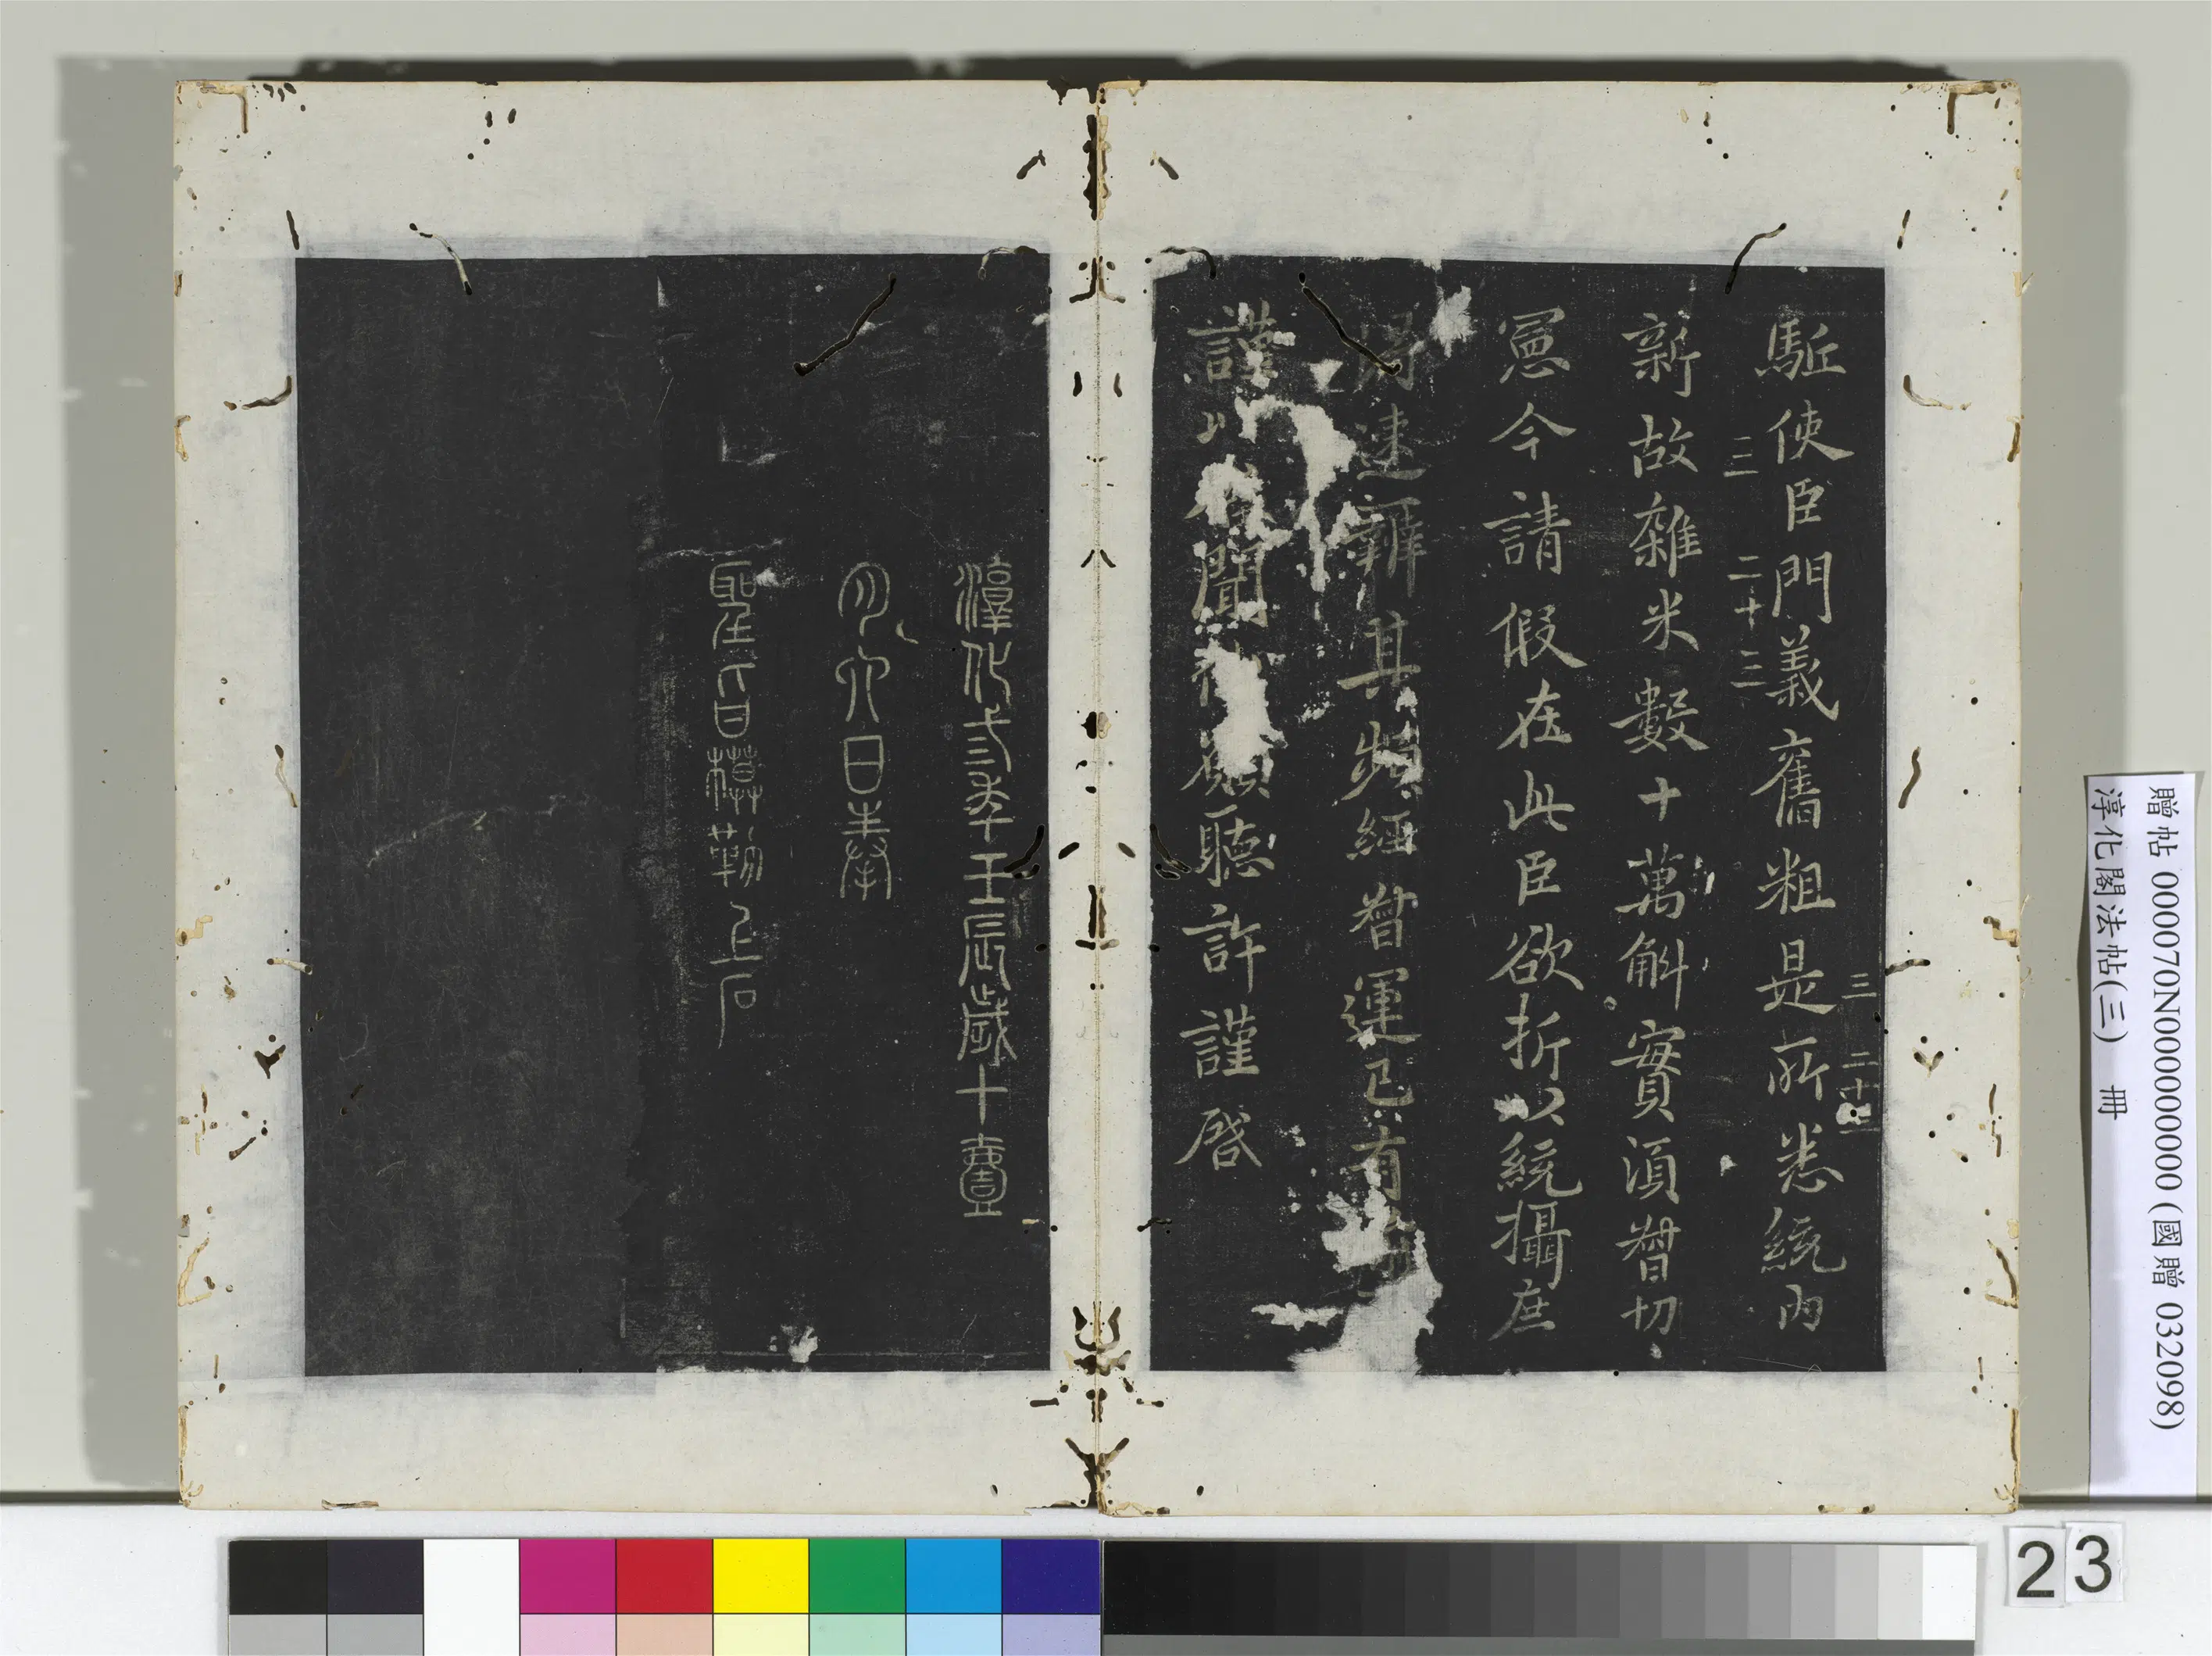 駈使臣門義舊粗是所悉統內
三 二十三
三 二十二
新故雜米數十萬斛實須督切
憲今請假在此臣欲折以統攝庶
得速辦其頻經督運已有
謹以 聞 願聽許謹啓
淳化三年壬辰歲十壹
月六日奉
聖旨模勒上石
贈帖 000070N000000000 (國贈 032098)
淳化閣法帖(三) 冊
23